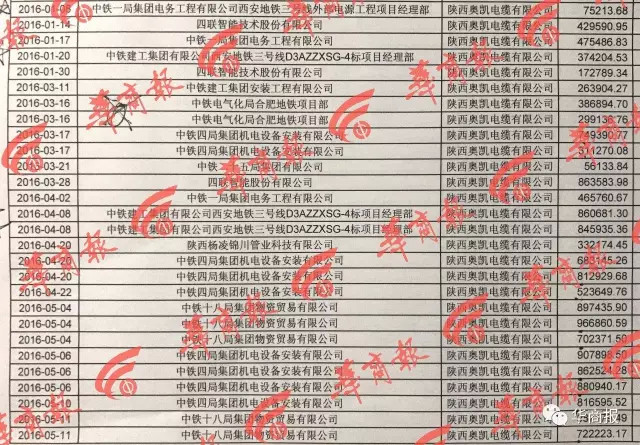 2016-01-08 中铁一局集团电务工程有限公司西安地铁三号线外部电源工程项目经理部 陕西奥凯电缆有限公司 75213.68
2016-01-14 四联智能技术股份有限公司 陕西奥凯电缆有限公司 429590.95
2016-01-17 中铁一局集团电务工程有限公司 陕西奥凯电缆有限公司 475486.83
2016-01-20 中铁建工集团有限公司西安地铁三号线D3AZZXSG-4标项目经理部 陕西奥凯电缆有限公司 374204.53
2016-01-30 四联智能技术股份有限公司 陕西奥凯电缆有限公司 172789.34
2016-03-11 中铁建工集团安装工程有限公司 陕西奥凯电缆有限公司 263904.27
2016-03-16 中铁电气化局合肥地铁项目部 陕西奥凯电缆有限公司 386894.70
2016-03-16 中铁电气化局合肥地铁项目部 陕西奥凯电缆有限公司 299138.76
2016-03-17 中铁四局集团机电设备安装有限公司 陕西奥凯电缆有限公司 749390.77
2016-03-17 中铁四局集团机电设备安装有限公司 陕西奥凯电缆有限公司 311270.08
2016-03-21 中铁二十五局集团有限公司 陕西奥凯电缆有限公司 56133.84
2016-03-28 四联智能股份有限公司 陕西奥凯电缆有限公司 863583.98
2016-04-02 中铁一局集团电务工程有限公司 陕西奥凯电缆有限公司 465760.67
2016-04-08 中铁建工集团有限公司西安地铁三号线D3AZZXSG-4标项目经理部 陕西奥凯电缆有限公司 860681.30
2016-04-08 中铁建工集团有限公司西安地铁三号线D3AZZXSG-4标项目经理部 陕西奥凯电缆有限公司 845935.36
2016-04-20 陕西杨凌锦川管业科技有限公司 陕西奥凯电缆有限公司 332174.45
2016-04-20 中铁四局集团机电设备安装有限公司 陕西奥凯电缆有限公司 683145.26
2016-04-20 中铁四局集团机电设备安装有限公司 陕西奥凯电缆有限公司 812929.68
2016-04-22 中铁四局集团机电设备安装有限公司 陕西奥凯电缆有限公司 523649.76
2016-05-04 中铁十八局集团物资贸易有限公司 陕西奥凯电缆有限公司 897435.90
2016-05-04 中铁十八局集团物资贸易有限公司 陕西奥凯电缆有限公司 966860.59
2016-05-04 中铁十八局集团物资贸易有限公司 陕西奥凯电缆有限公司 702371.50
2016-05-06 中铁四局集团机电设备安装有限公司 陕西奥凯电缆有限公司 907898.50
2016-05-06 中铁四局集团机电设备安装有限公司 陕西奥凯电缆有限公司 862524.28
2016-05-06 中铁四局集团机电设备安装有限公司 陕西奥凯电缆有限公司 880940.17
2016-05-10 中铁四局集团机电设备安装有限公司 陕西奥凯电缆有限公司 816595.52
2016-05-11 中铁十八局集团物资贸易有限公司 陕西奥凯电缆有限公司
2016-05-11 中铁十八局集团物资贸易有限公司 陕西奥凯电缆有限公司 722223.17
华商报